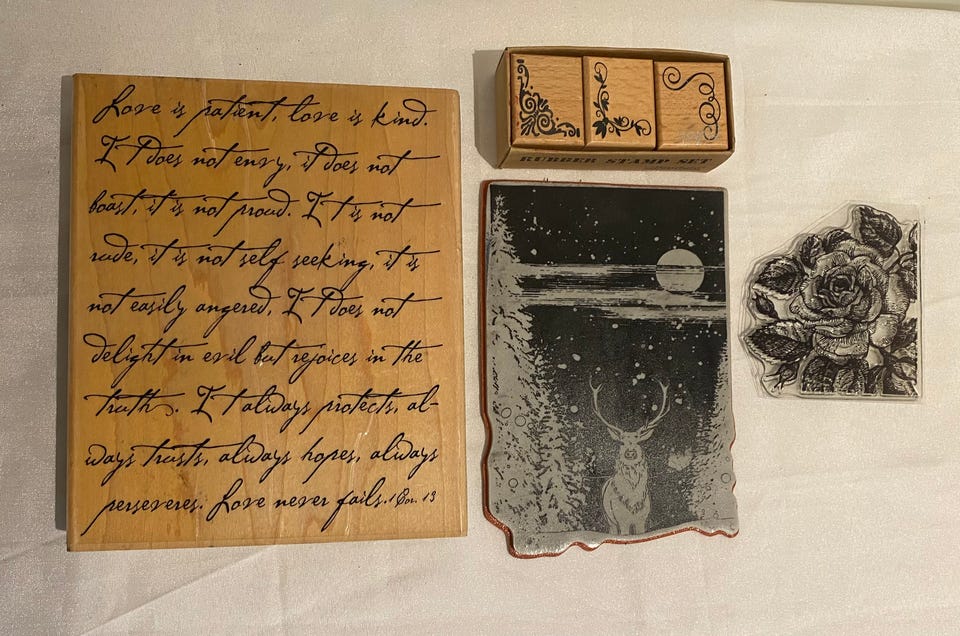 Love is patient, love is kind.
It does not envy, it does not
boast, it is not proud. It is not
rude, it is not self seeking, it is
not easily angered, It does not
delight in evil but rejoices in the
truth. It always protects, al-
ways trusts, always hopes, always
perseveres. Love never fails. 1 Cor. 13
RUBBER STAMP SET